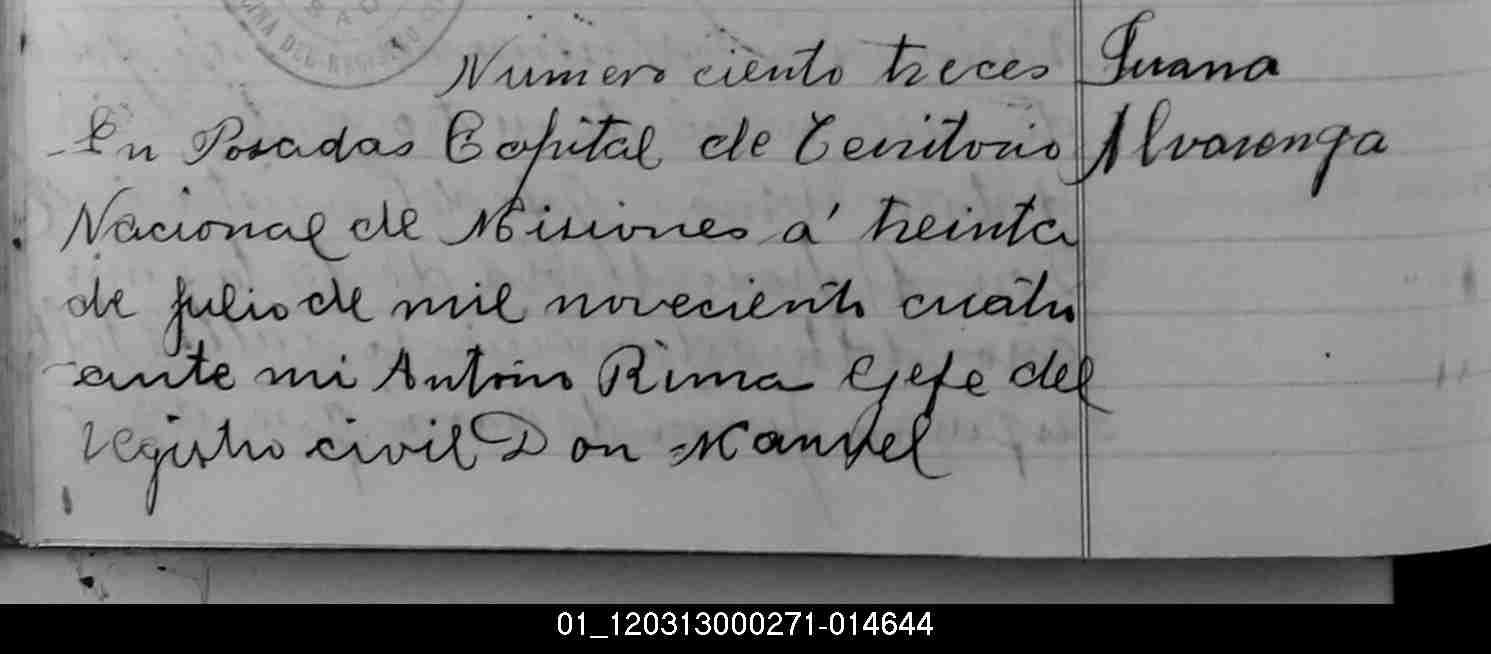 DEL REGISTRO
Numero ciento treces
En Posadas Capital de Territorio
Nacional de Misiones á treinta
de julio de mil noveciento cuatro
ante mi Antonio Rima Gefe del
registro civil Don Manuel
Juana
Alvarenga
01_120313000271-014644